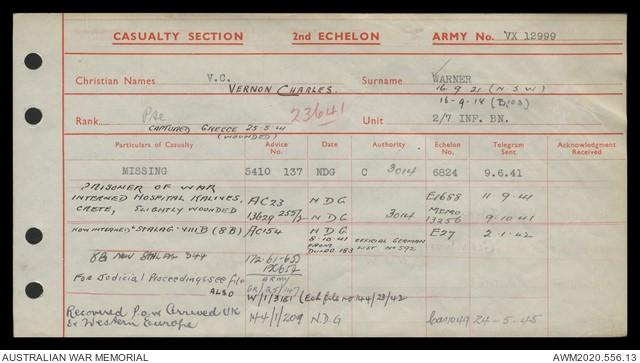 CASUALTY SECTION 2nd ECHELON ARMY No. VX 12999
Christian Names V.C. Surname WARNER
VERNON CHARLES. 16 9 21 (N.S.W)
16-9-18 (D103)
Rank Pte 23641 Unit 2/7 INF. BN.
CAPTURED GREECE 25-5-41
(WOUNDED)
Particulars of Casualty Advice No. Date Authority Echelon No. Telegram Sent Acknowledgment Received
MISSING 5410 137 NDG C 3014 6824 9.6.41
PRISONER OF WAR
INTERNED HOSPITAL KALIVES, AC23 NDG E1688 11 9.41
CRETE, SLIGHTLY WOUNDED 13629 255/2 NDG 3014 MEMO 13256 9.10.41
NOW INTERNED STALAG VIIIB (8B) AC154 NDG E27 2.1.42
8.10.41 FROM OFFICIAL GERMAN LIST NO 592
8B NOW STALAG 344 172-61-65)
For Judicial Proceedings see file ARMY
ALSO
W/1/3151 (Ech file no 144/23/42
Recovered P.O.W Arrived UK 144/1/209 N.D.G 24-5-45
Ex Western Europe
AUSTRALIAN WAR MEMORIAL AWM2020.556.13